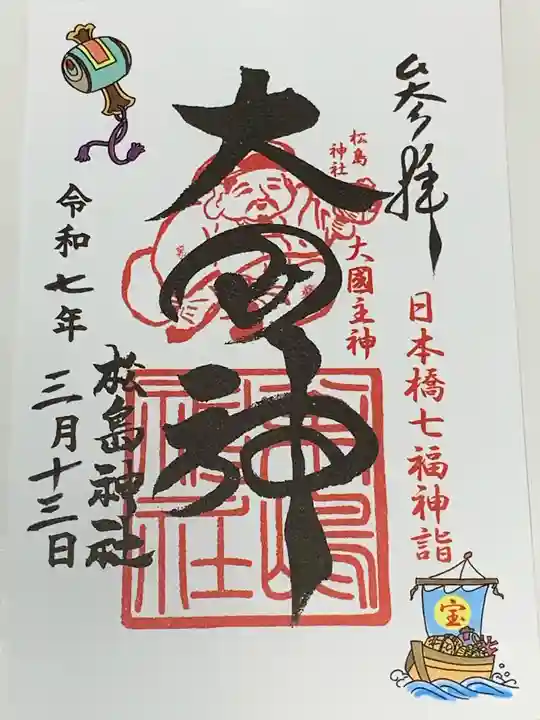 参拝
日本橋七福神詣
松島
神社
大國主神
大黒神
松島神社
令和七年
三月十三日
松島
神社
宝